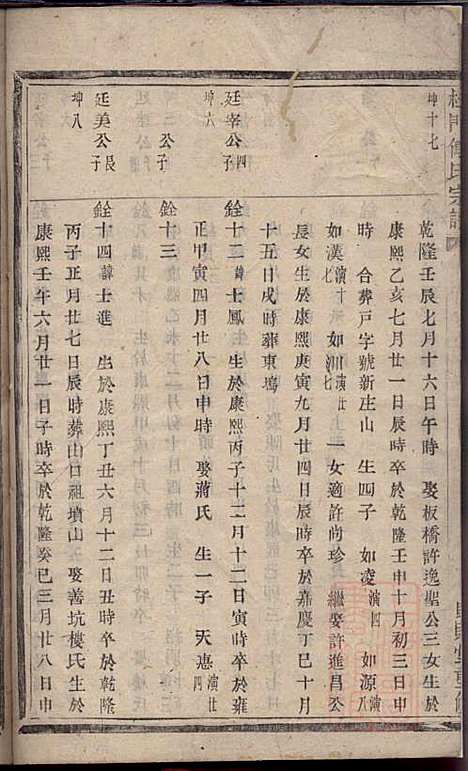 坤十七
乾隆壬辰七月十六日午時 娶板橋許逸聖公三女生於
康熙乙亥七月廿一日辰時卒於乾隆壬申十月初三日申
時 合葬戸字號新庄山 生四子 如凌演四 如源演八
如漢演十 如川演廿七 一女適許尚珍 繼娶許進昌公
長女生於康熙庚寅九月廿四日辰時卒於嘉慶丁巳十月
十五日戌時葬東塢
廷宰公四子
坤六
銓十二諱士鳳 生於康熙丙子十二月十二日寅時卒於雍
正甲寅四月廿八日申時 娶蔣氏 生一子 天惠演廿
公子
銓十三
廷美公長子
坤八
銓十四諱士進 生於康熙丁丑六月十二日丑時卒於乾隆
丙子正月廿七日辰時葬山口祖墳山 娶善坑樓氏生於
康熙壬午六月廿一日子時卒於乾隆癸巳三月廿八日申